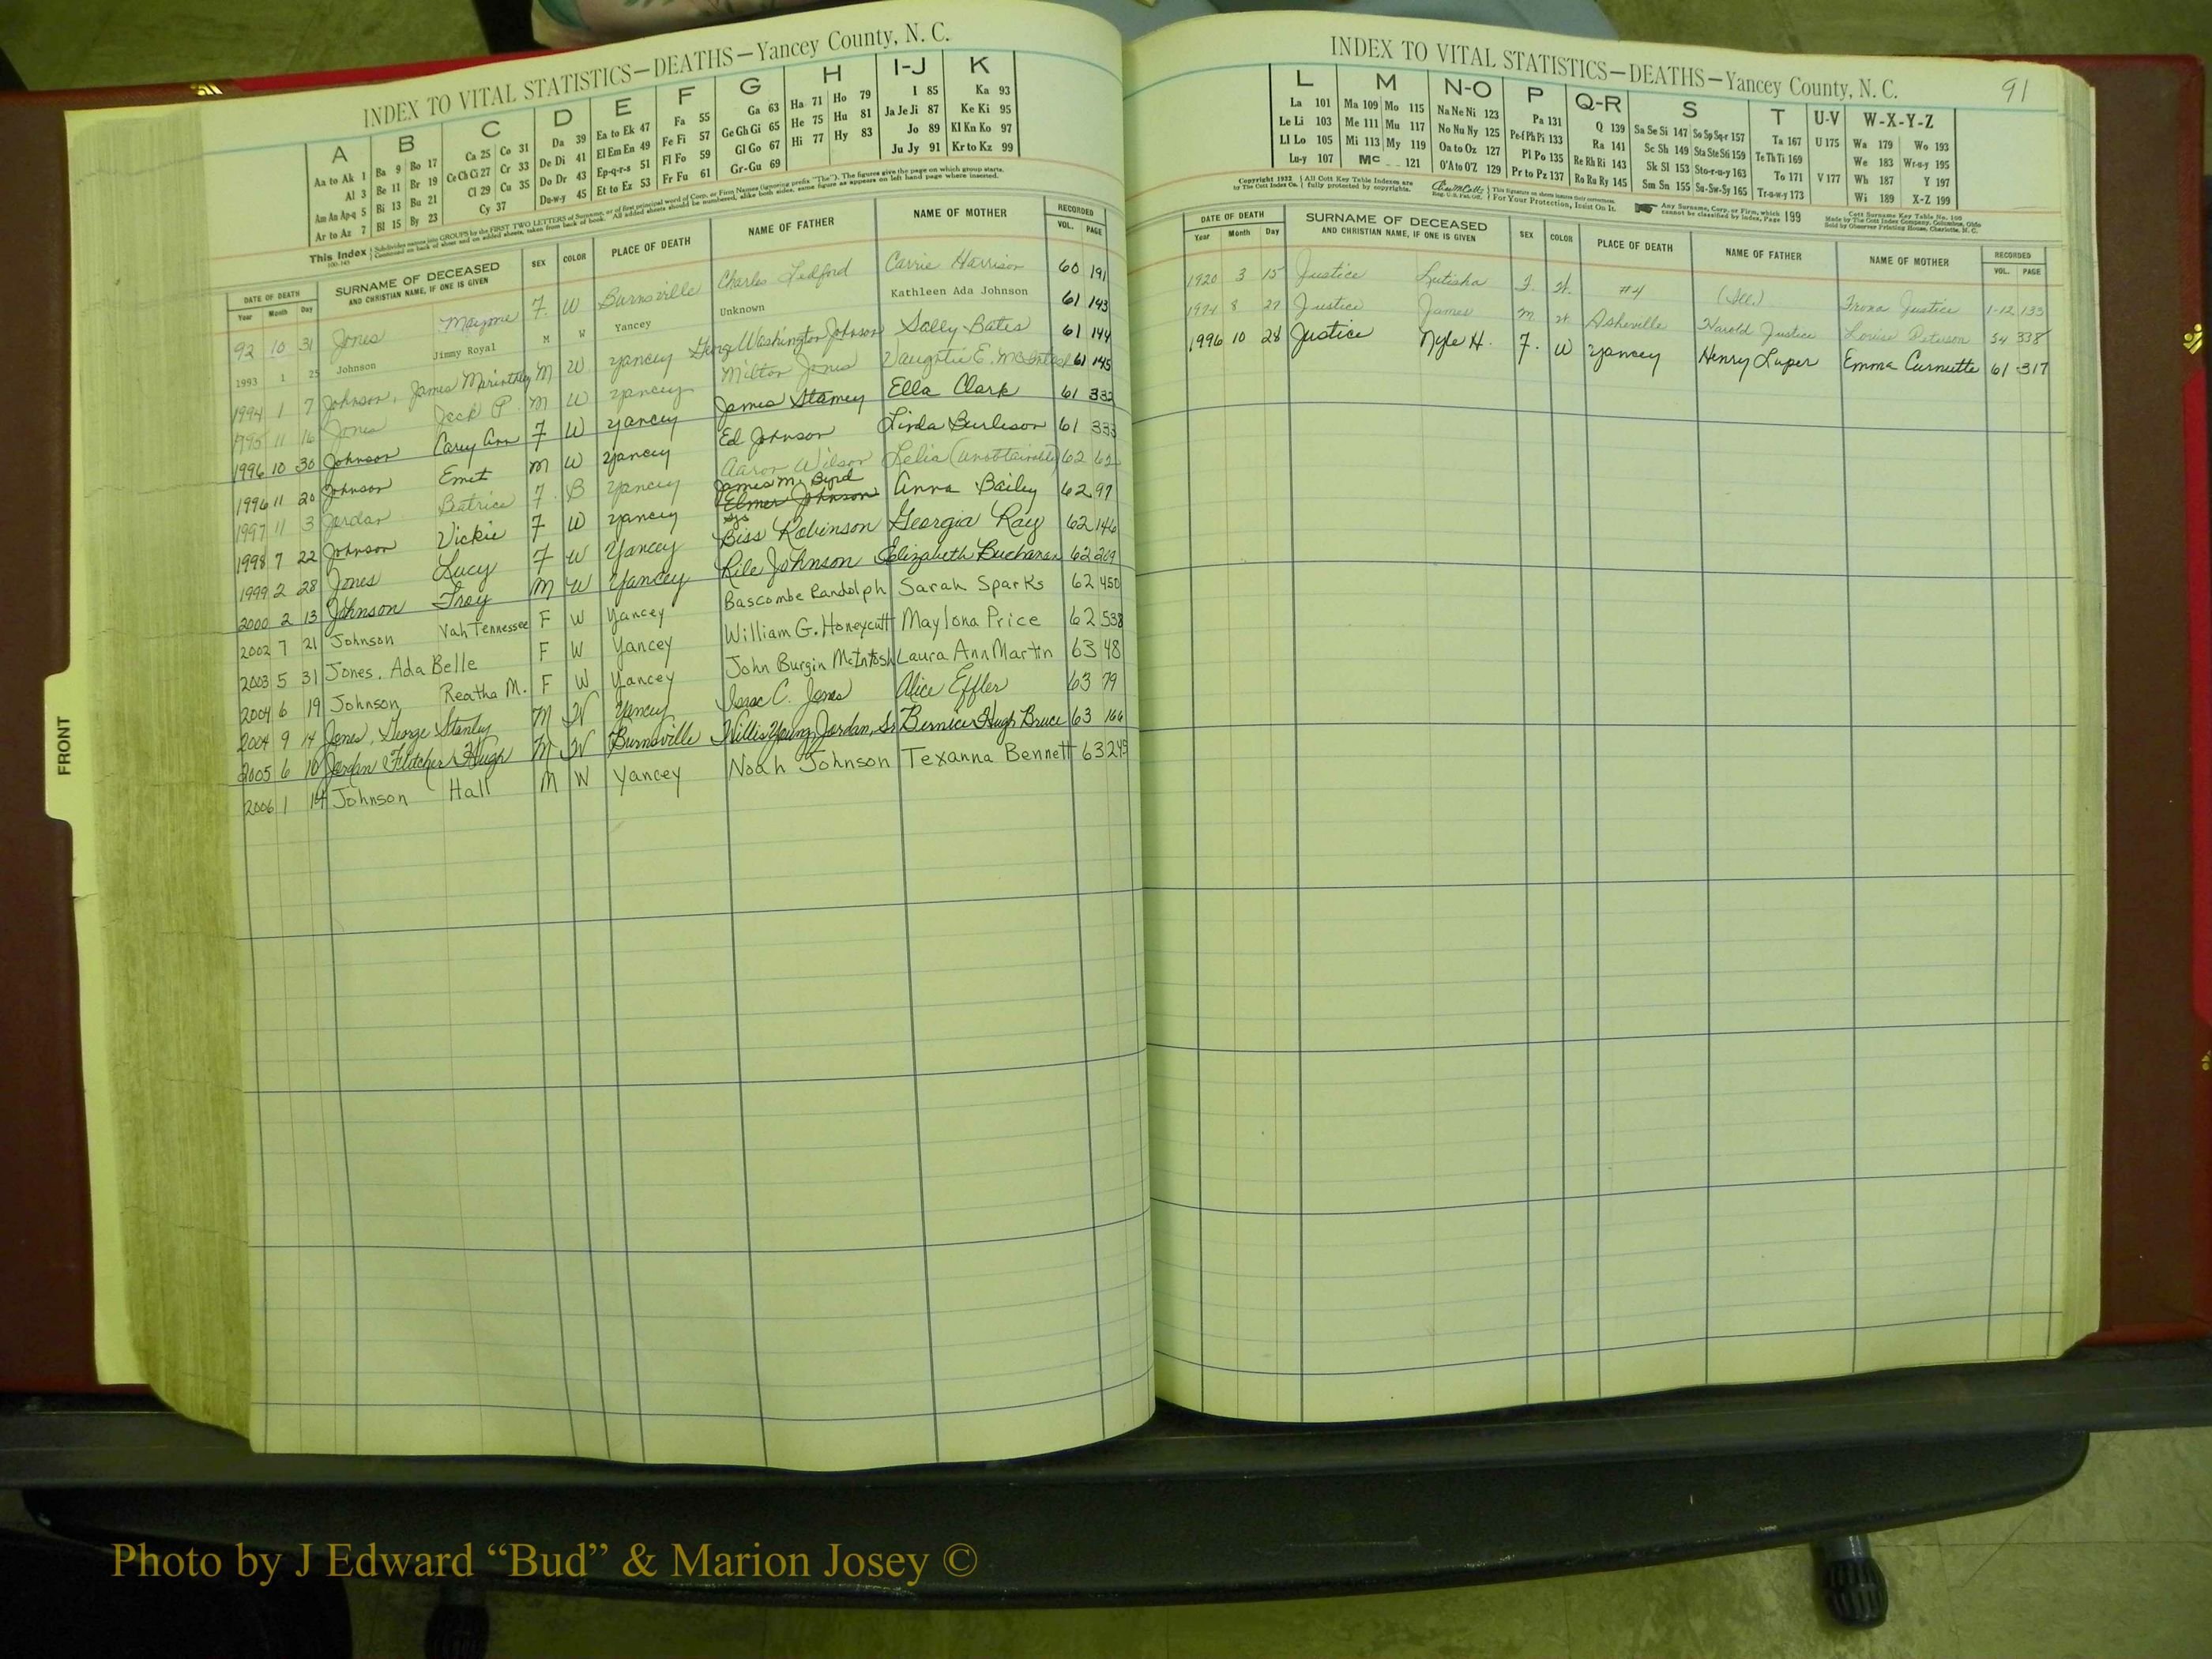 INDEX TO VITAL STATISTICS—DEATHS—Yancey County, N. C.
A B C D E F G H I-J K
Aa to Ak 1 Ba 9 Bo 17 Ca 25 Co 31 Da 39 Ea to Ek 47 Fa 55 Ga 63 Ha 71 Ho 79 I 85 Ka 93
Al 3 Be 11 Br 19 Ce Ch Ci 27 Cr 33 De Di 41 El Em En 49 Fe Fi 57 Ge Gh Gi 65 He 75 Hu 81 Ja Je Ji 87 Ke Ki 95
Am An Ap-q 5 Bi 13 Bu 21 Cl 29 Cu 35 Do Dr 43 Ep-q-r-s 51 Fl Fo 59 Gl Go 67 Hi 77 Hy 83 Jo 89 Kl Kn Ko 97
Ar to Az 7 Bl 15 By 23 Cy 37 Du-w-y 45 Et to Ez 53 Fr Fu 61 Gr-Gu 69 Ju Jy 91 Kr to Kz 99
This Index Subdivides names into GROUPS by the FIRST TWO LETTERS of Surname, or of first principal word of Corp. or Firm Names (ignoring prefix "The"). The figures give the page on which group starts.
Continued on back of sheet and on added sheets, taken from back of book. All added sheets should be numbered, alike both sides, same figure as appears on left hand page where inserted.
DATE OF DEATH SURNAME OF DECEASED SEX COLOR PLACE OF DEATH NAME OF FATHER NAME OF MOTHER RECORDED
Year Month Day AND CHRISTIAN NAME, IF ONE IS GIVEN VOL. PAGE
92 10 31 Jones Mayme F. W Burnsville Charles Ledford Carrie Harrison 60 191
1993 1 25 Johnson Jimmy Royal M W Yancey Unknown Kathleen Ada Johnson 61 143
1994 1 7 Johnson, James M W Yancey George Washington Johnson Sally Bates 61 144
1995 11 16 Jones Jack P. M W Yancey Milton Jones E. McIntosh 61 145
1996 10 30 Johnson Carey Ann F W Yancey James Stamey Ella Clark 61 332
1996 11 20 Johnson Emit M W Yancey Ed Johnson Linda Burleson 61 333
1997 11 3 Jordan Beatrice F. B Yancey Aaron Wilson Lelia (unobtainable) 62 62
1998 7 22 Johnson Vickie F W Yancey James M. Byrd Elmer Johnson Anna Bailey 62 97
1999 2 28 Jones Lucy F W Yancey Biss Robinson Georgia Ray 62 146
2000 2 13 Johnson Troy M W Yancey Rile Johnson Elizabeth Buchanan 62 209
2002 7 21 Johnson Vah Tennessee F W Yancey Bascombe Randolph Sarah Sparks 62 450
2003 5 31 Jones, Ada Belle F W Yancey William G. Honeycutt Maylona Price 62 538
2004 6 19 Johnson Reatha M. F W Yancey John Burgin McIntosh Laura Ann Martin 63 48
2004 9 14 Jones, George Stanley M W Yancey Isaac C. Jones Alice Effler 63 79
2005 6 10 Jordan Fletcher Hugh M W Burnsville Willis Young Jordan, Sr Bernice Hugh Bruce 63 166
2006 1 14 Johnson Hall M W Yancey Noah Johnson Texanna Bennett 63 245
FRONT
INDEX TO VITAL STATISTICS—DEATHS—Yancey County, N. C. 91
L M N-O P Q-R S T U-V W-X-Y-Z
La 101 Ma 109 Mo 115 Na Ne Ni 123 Pa 131 Q 139 Sa Se Si 147 So Sp Sq-r 157 Ta 167 U 175 Wa 179 Wo 193
Le Li 103 Me 111 Mu 117 No Nu Ny 125 Pe-f Ph Pi 133 Ra 141 Sc Sh 149 Sta Ste Sti 159 Te Th Ti 169 We 183 Wr-u-y 195
Ll Lo 105 Mi 113 My 119 Oa to Oz 127 Pl Po 135 Re Rh Ri 143 Sk Sl 153 Sto-r-u-y 163 To 171 V 177 Wh 187 Y 197
Lu-y 107 Mc 121 O'A to O'Z 129 Pr to Pz 137 Ro Ru Ry 145 Sm Sn 155 Su-Sw-Sy 165 Tr-u-w-y 173 Wi 189 X-Z 199
Copyright 1922 by The Cott Index Co. All Cott Key Table Indexes are fully protected by copyrights. Reg. U.S. Pat. Off. This signature on sheets insures their correctness. For Your Protection, Insist On It. Any Surname, Corp. or Firm, which cannot be classified by index, Page 199
Made by The Cott Index Company, Columbus, Ohio
Sold by Observer Printing House, Charlotte, N. C.
DATE OF DEATH SURNAME OF DECEASED SEX COLOR PLACE OF DEATH NAME OF FATHER NAME OF MOTHER RECORDED
Year Month Day AND CHRISTIAN NAME, IF ONE IS GIVEN VOL. PAGE
1920 3 15 Justice Lutisha F. W. #4 (Ill.) Justice 1-12 133
1974 8 27 Justice James M W Asheville Harold Justice Louise Peterson 54 338
1996 10 28 Justice Nyle H. F. W Yancey Henry Luper Emma Curnutte 61 317
Photo by J Edward “Bud” & Marion Josey ©